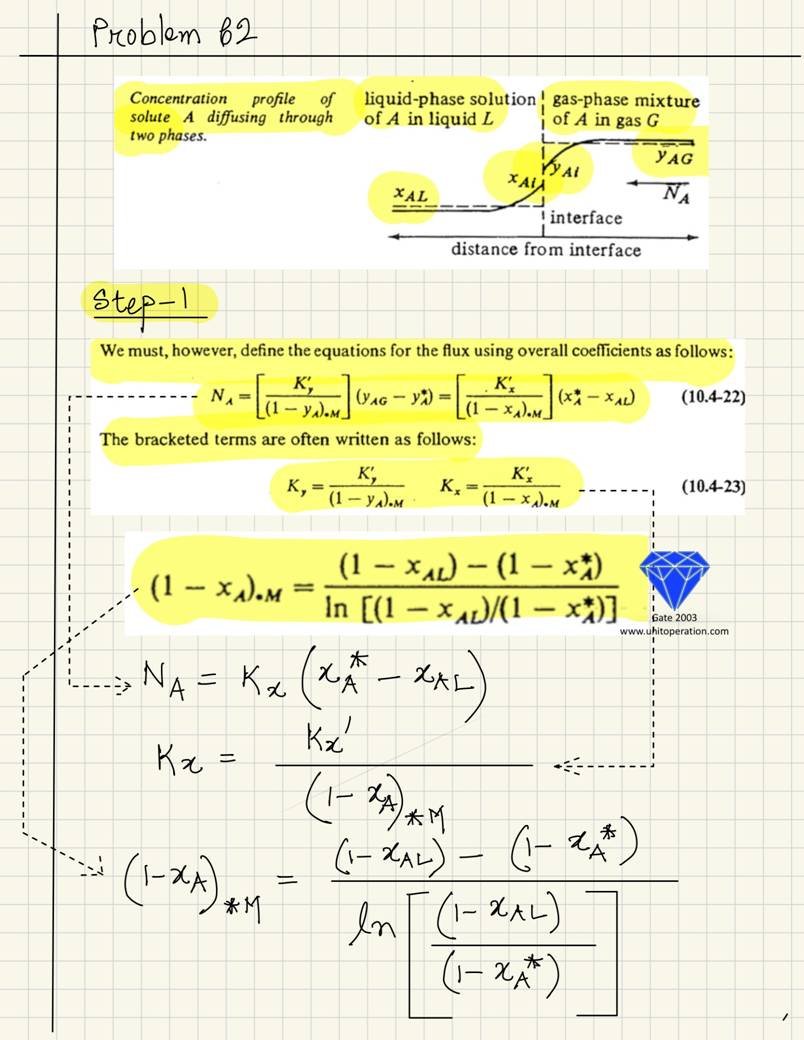 Problem 62
Concentration profile of
solute A diffusing through
two phases.
liquid-phase solution
of A in liquid L
gas-phase mixture
of A in gas G
yAG
yAi
xAi
xAL
NA
interface
distance from interface
Step-1
We must, however, define the equations for the flux using overall coefficients as follows:
NA = [K'y / (1 − yA)*M] (yAG − y*A) = [K'x / (1 − xA)*M] (x*A − xAL) (10.4-22)
The bracketed terms are often written as follows:
Ky = K'y / (1 − yA)*M Kx = K'x / (1 − xA)*M (10.4-23)
(1 − xA)*M = (1 − xAL) − (1 − x*A) / ln [(1 − xAL)/(1 − x*A)]
Gate 2003
www.unitoperation.com
NA = Kx (xA* − xAL)
Kx = Kx' / (1 − xA)*M
(1-xA)*M = (1-xAL) − (1- xA*) / ln [(1- xAL) / (1- xA*)]